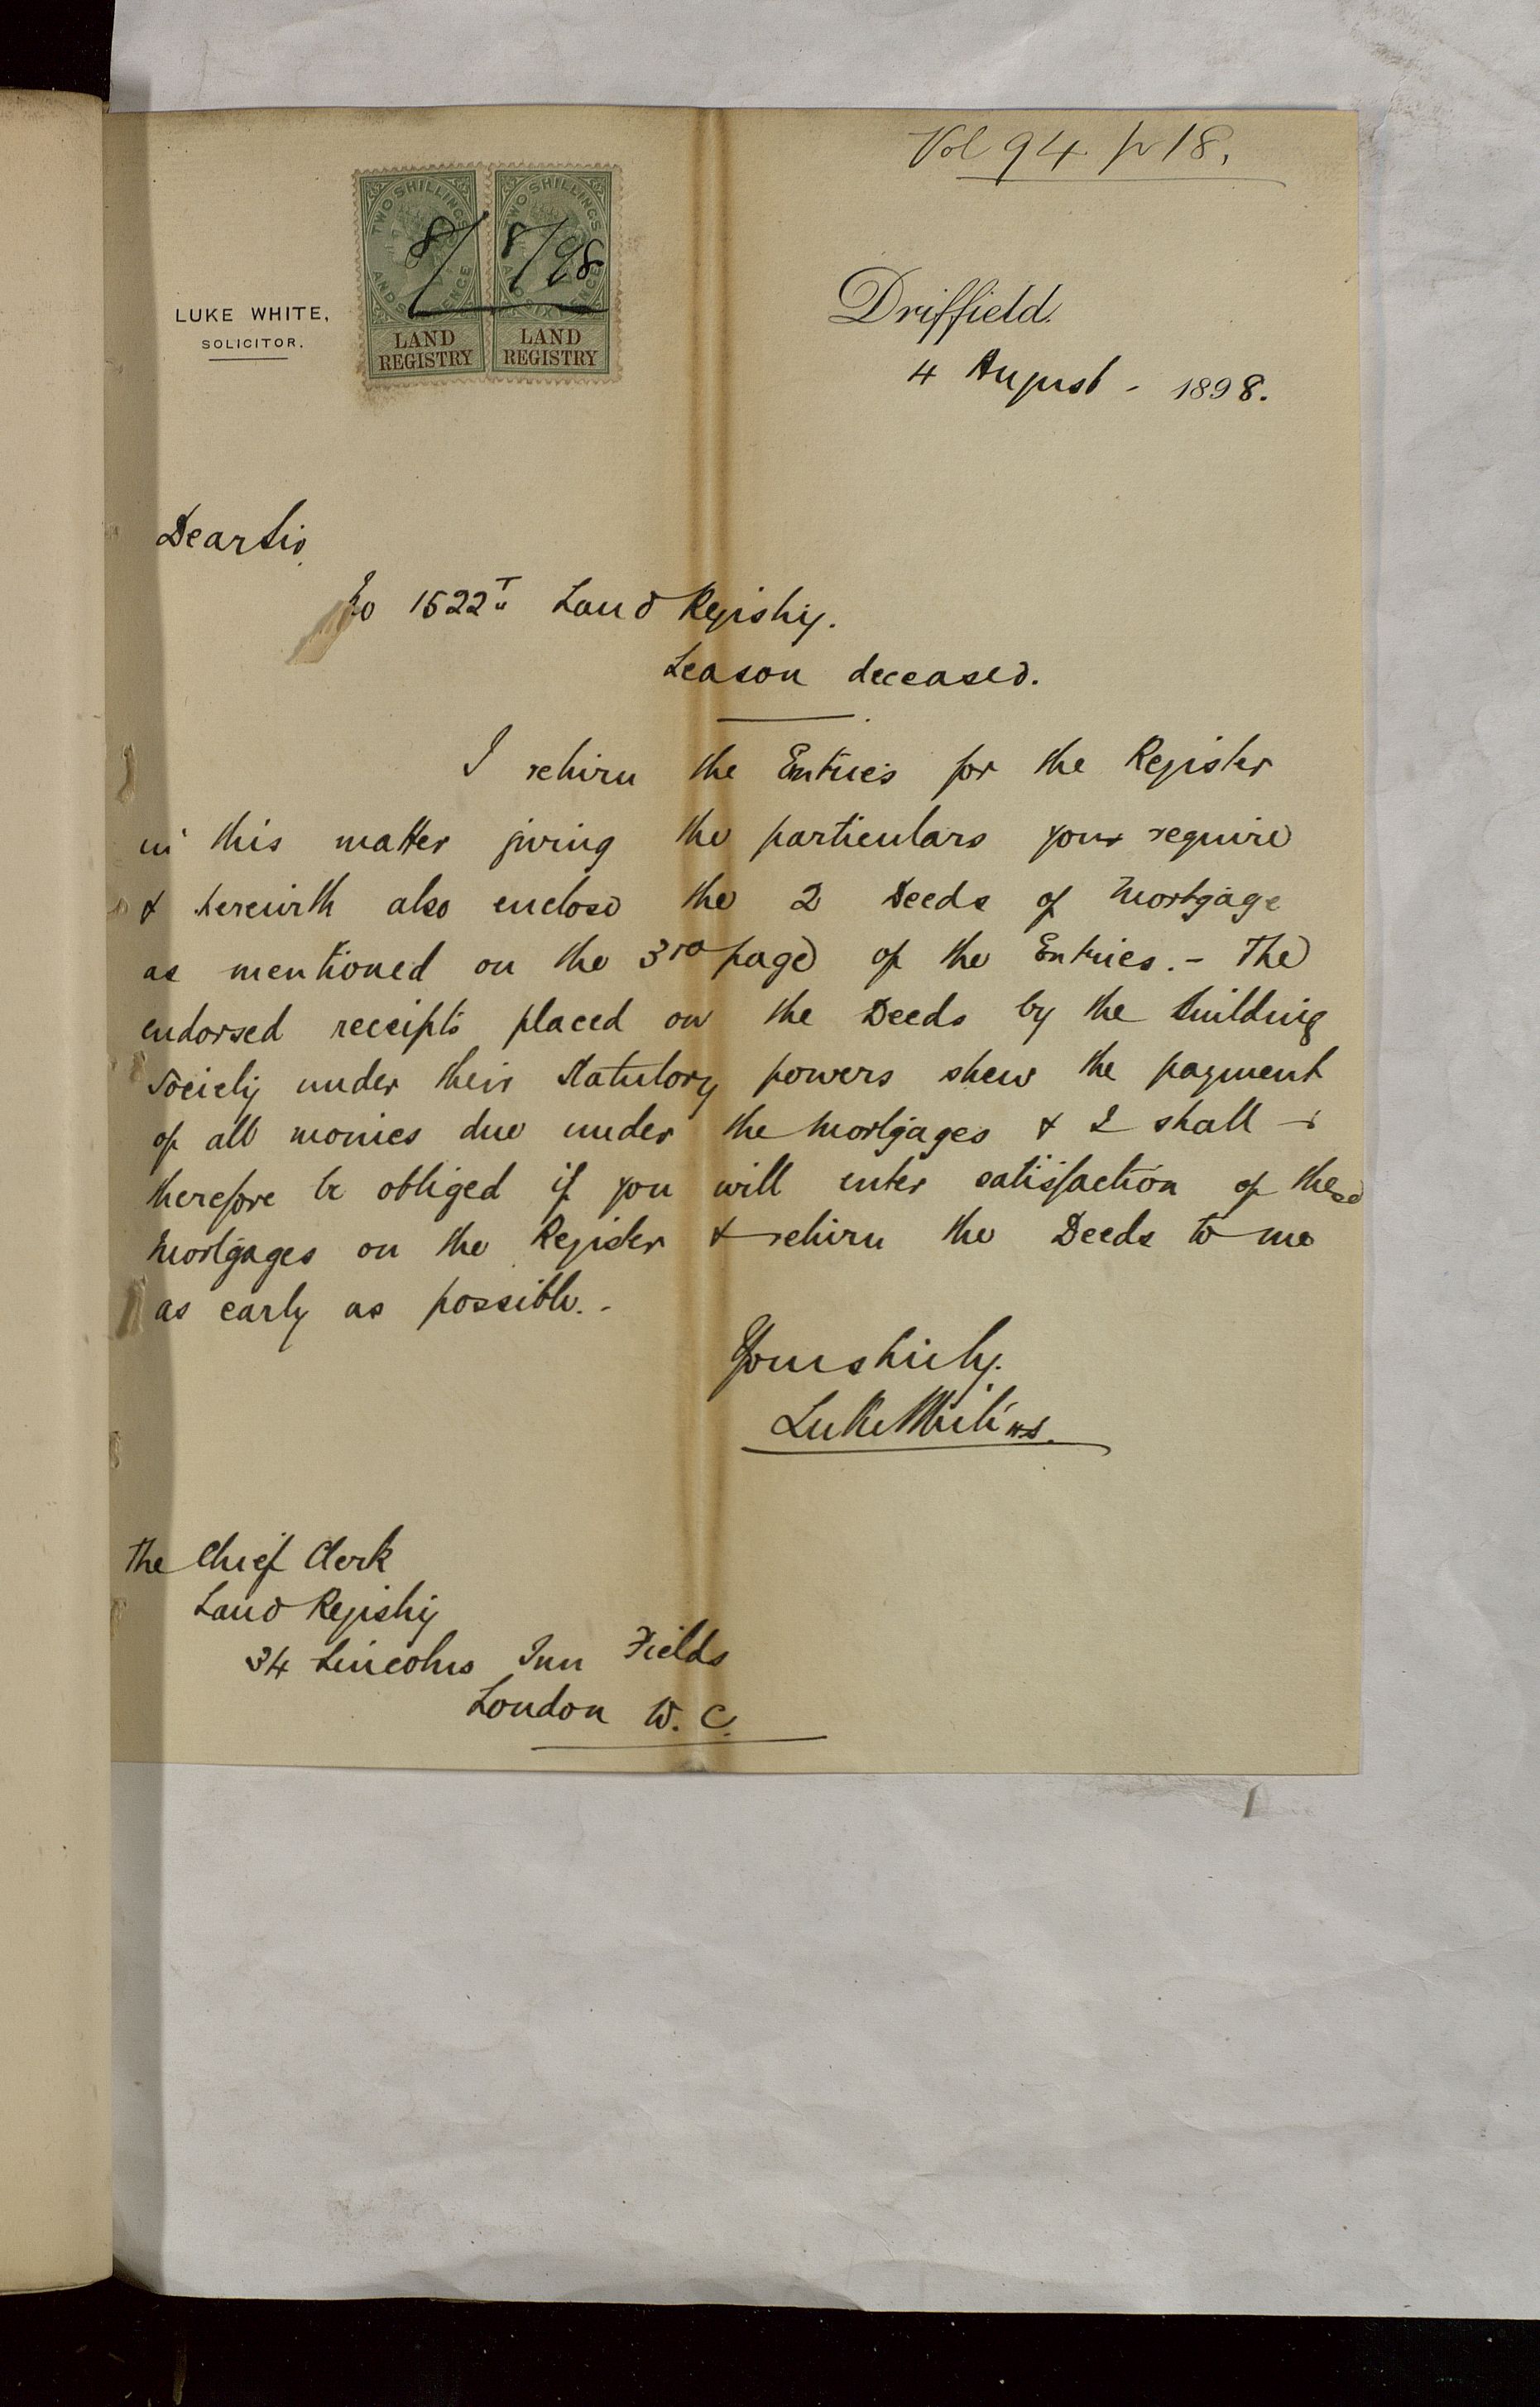 Vol 94 p 18.
TWO SHILLINGS AND SIXPENCE
LAND REGISTRY
TWO SHILLINGS AND SIXPENCE
LAND REGISTRY
8/8/98
LUKE WHITE,
SOLICITOR.
Driffield.
4 August - 1898.
Dear Sir
No 1522 Land Registry.
Leason deceased.
I return the Entries for the Register
in this matter giving the particulars you require
& herewith also enclose the 2 Deeds of Mortgage
as mentioned on the 3rd page of the Entries. - The
endorsed receipts placed on the Deeds by the Building
Society under their Statutory powers shew the payment
of all monies due under the Mortgages & I shall -
therefore be obliged if you will enter satisfaction of these
Mortgages on the Register & return the Deeds to me
as early as possible. -
Yours truly.
Luke White
The Chief Clerk
Land Registry
34 Lincolns Inn Fields
London W. C.